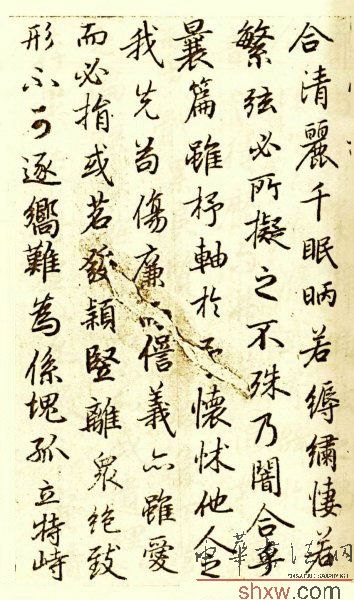 合清麗千眠昞若縟繡悽若
繁弦必所擬之不殊乃闇合乎
曩篇雖杼軸於予懷怵他人之
我先苟傷廉而諐義亦雖愛
而必捐或苕發穎竪離衆絶致
形不可逐嚮難為係塊孤立特峙
中華書法网
shxw.com